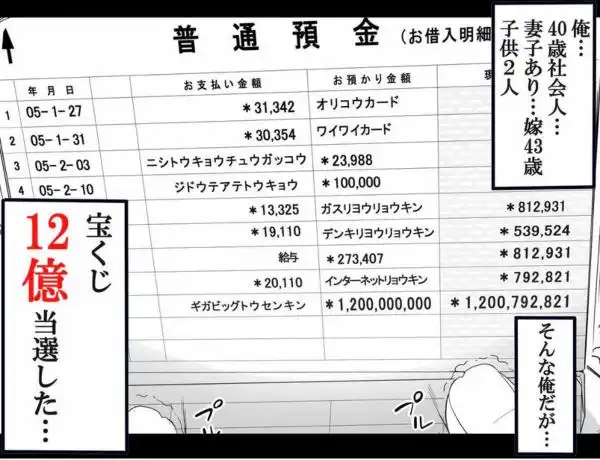 俺…
40歳社会人…
妻子あり…嫁43歳
子供2人
普通預金(お借入明細
年月日 お支払い金額 お預かり金額 現
1 05-1-27 *31,342 オリコウカード
2 05-1-31 *30,354 ワイワイカード
3 05-2-03 ニシトウキョウチュウガッコウ *23,988
4 05-2-10 ジドウテアテトウキョウ *100,000
*13,325 ガスリヨウリョウキン *812,931
*19,110 デンキリヨウリョウキン *539,524
給与 *273,407 *812,931
*20,110 インターネットリョウキン *792,821
ギガビッグトウセンキン *1,200,000,000 *1,200,792,821
そんな俺だが…
宝くじ
12億
当選した…
プル
プル